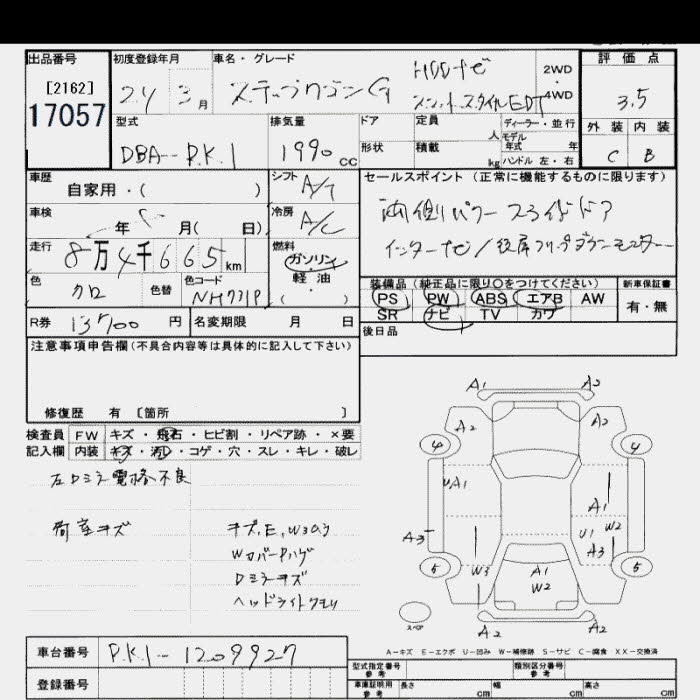 出品番号 初度登録年月 車名・グレード 評価点
[2162]
17057
24 3月 ステップワゴンG HDDナビ 2WD 4WD 3.5
スマートスタイルEDT
外装 内装
C B
型式 排気量 ドア 定員 人 ディーラー・並行
モデル年式 年
DBA-- P.K.1 1990 cc 形状 積載 kg ハンドル 左・右
車歴 シフト A/T セールスポイント (正常に機能するものに限ります)
自家用・( )
両側パワースライドドア
車検 年 月( 日) 冷房 A/C
インターナビ/後席フリップダウンモニター
走行 8万4千665km 燃料
ガソリン・軽油・( )
色 クロ 色替 色コード NH731P
装備品 (純正品に限り○をつけてください) 新車保証書
PS PW ABS エアB AW 有・無
SR ナビ TV カワ
R券 円 名変期限 月 日 後日品
注意事項申告欄(不具合内容等は具体的に記入して下さい)
修復歴 有 [箇所 ]
検査員 FW キズ・飛石・ヒビ割・リペア跡・×要
記入欄 内装 キズ・汚レ・コゲ・穴・スレ・キレ・破レ
左Dミラー電格不良
荷室キズ キズ,E,W3あり
WカバーPハゲ
Dミラーキズ
ヘッドライトクモリ
A1 A2
A2 A2
4 4
UA1 A1
A3 U1 W2
A3
5 W3 A1 5
W2
スペア
A2 A2
A-キズ E-エクボ U-凹み W-補修跡 S-サビ C-腐食 XX-交換済
車台番号 P.K.1-1209927
登録番号
型式指定番号 参考 類別区分番号 参考
車庫証明用 参考 長さ cm 幅 cm 高さ cm